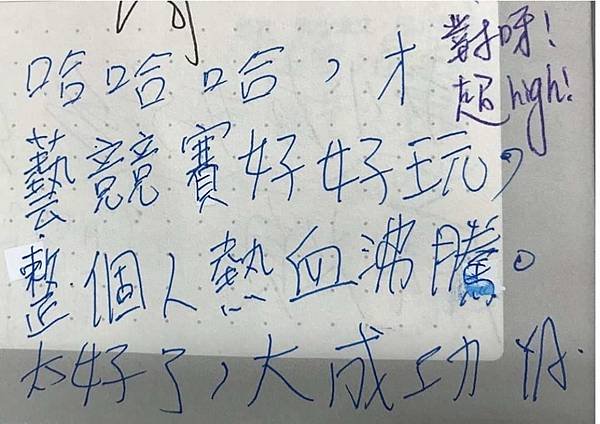 哈哈哈，才
藝競賽好好玩，
整個人熱血沸騰。
太好了，大成功 YA.
對呀！
超high!